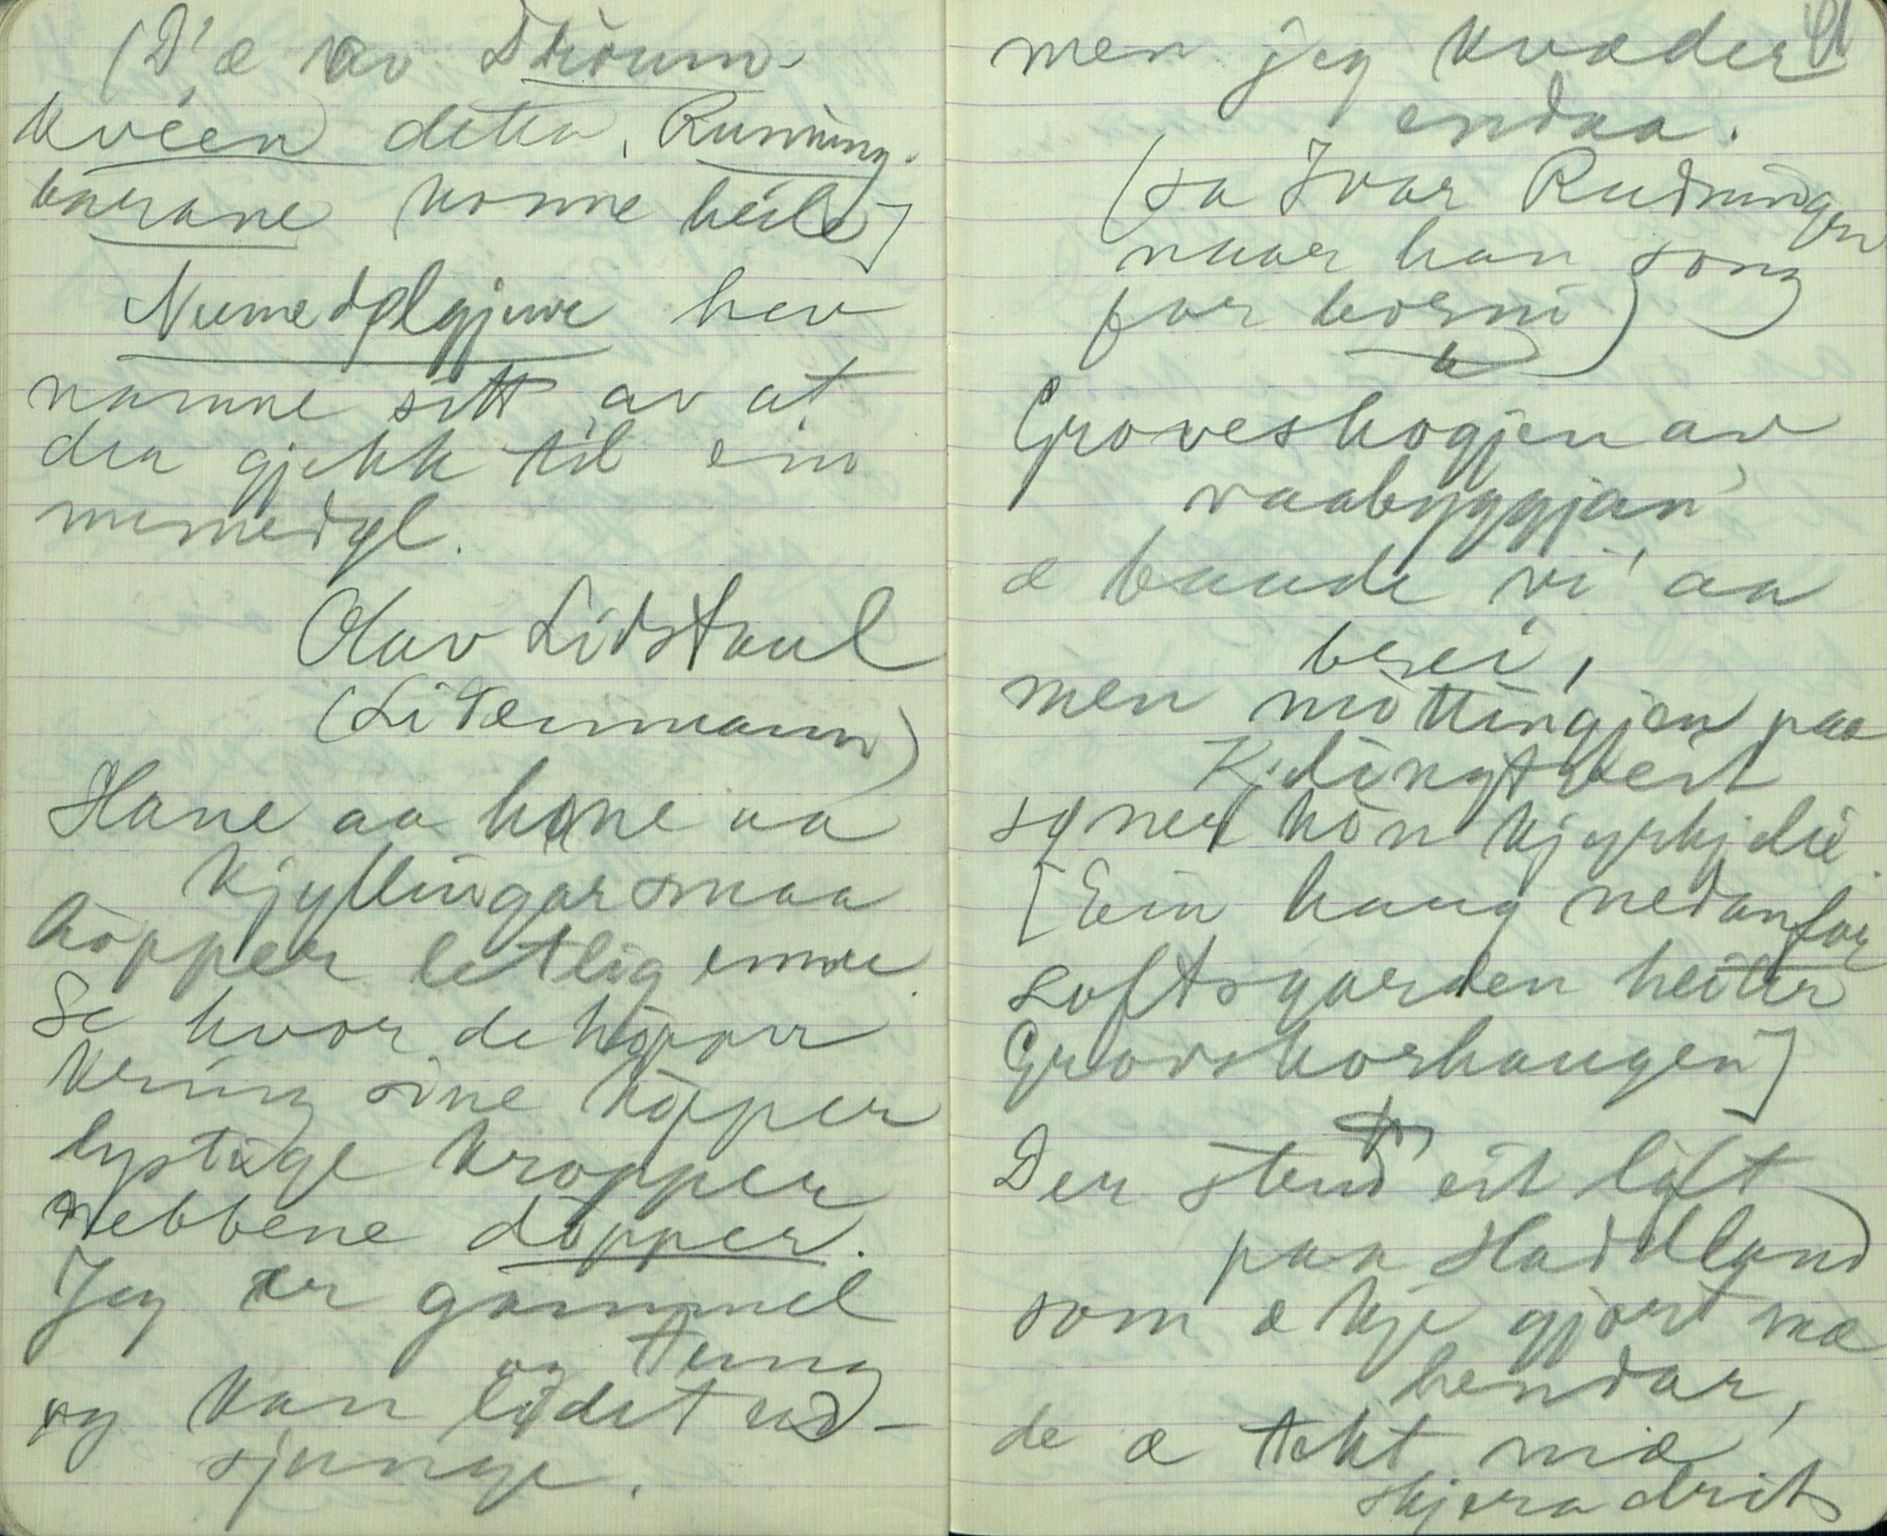 (D'æ av Draum-
kvéen detta. Running-
karane konne heile]
Numedølgjuve hev
namne sitt av at
dea gjekk til ein
numedøl.
Olav Lidstaul
(Litenmann)
Hane aa høne aa
kjyllingar smaa
hopper letlig
Se hvor de hopper
kring sine kopper
lystige kropper
nebbene dopper.
Jeg er gammel
og tung
og kan lidet ud-
sjunge.
men jeg kvæder
endaa.
(sa Ivar Rudningen
naar han song
for borni)
Groveskogjen av
raabyggjan'
æ baade vi' aa
brei,
men möttingjen paa
syner kön kjyrkjelei
[Ein haug nedanfor
Loftsgarden heiter
Grovskorhaugen]
Der stend eit løft
paa Haddland
som æ kje gjort mæ
hendar,
de æ tekt mæ
skjeradrit